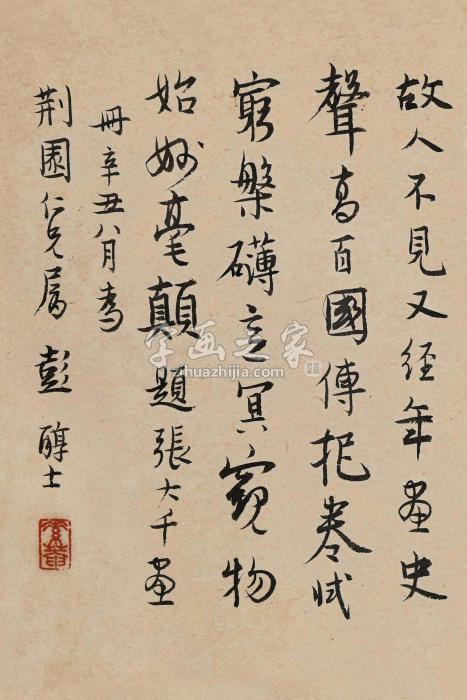 故人不見又經年畫史
聲高百國傳把卷試
窮槃礴意冥觀物
始妙毫顛題張大千畫
冊辛丑八月書
荆園仁兄屬 彭醇士
字画之家
huazhijia.com